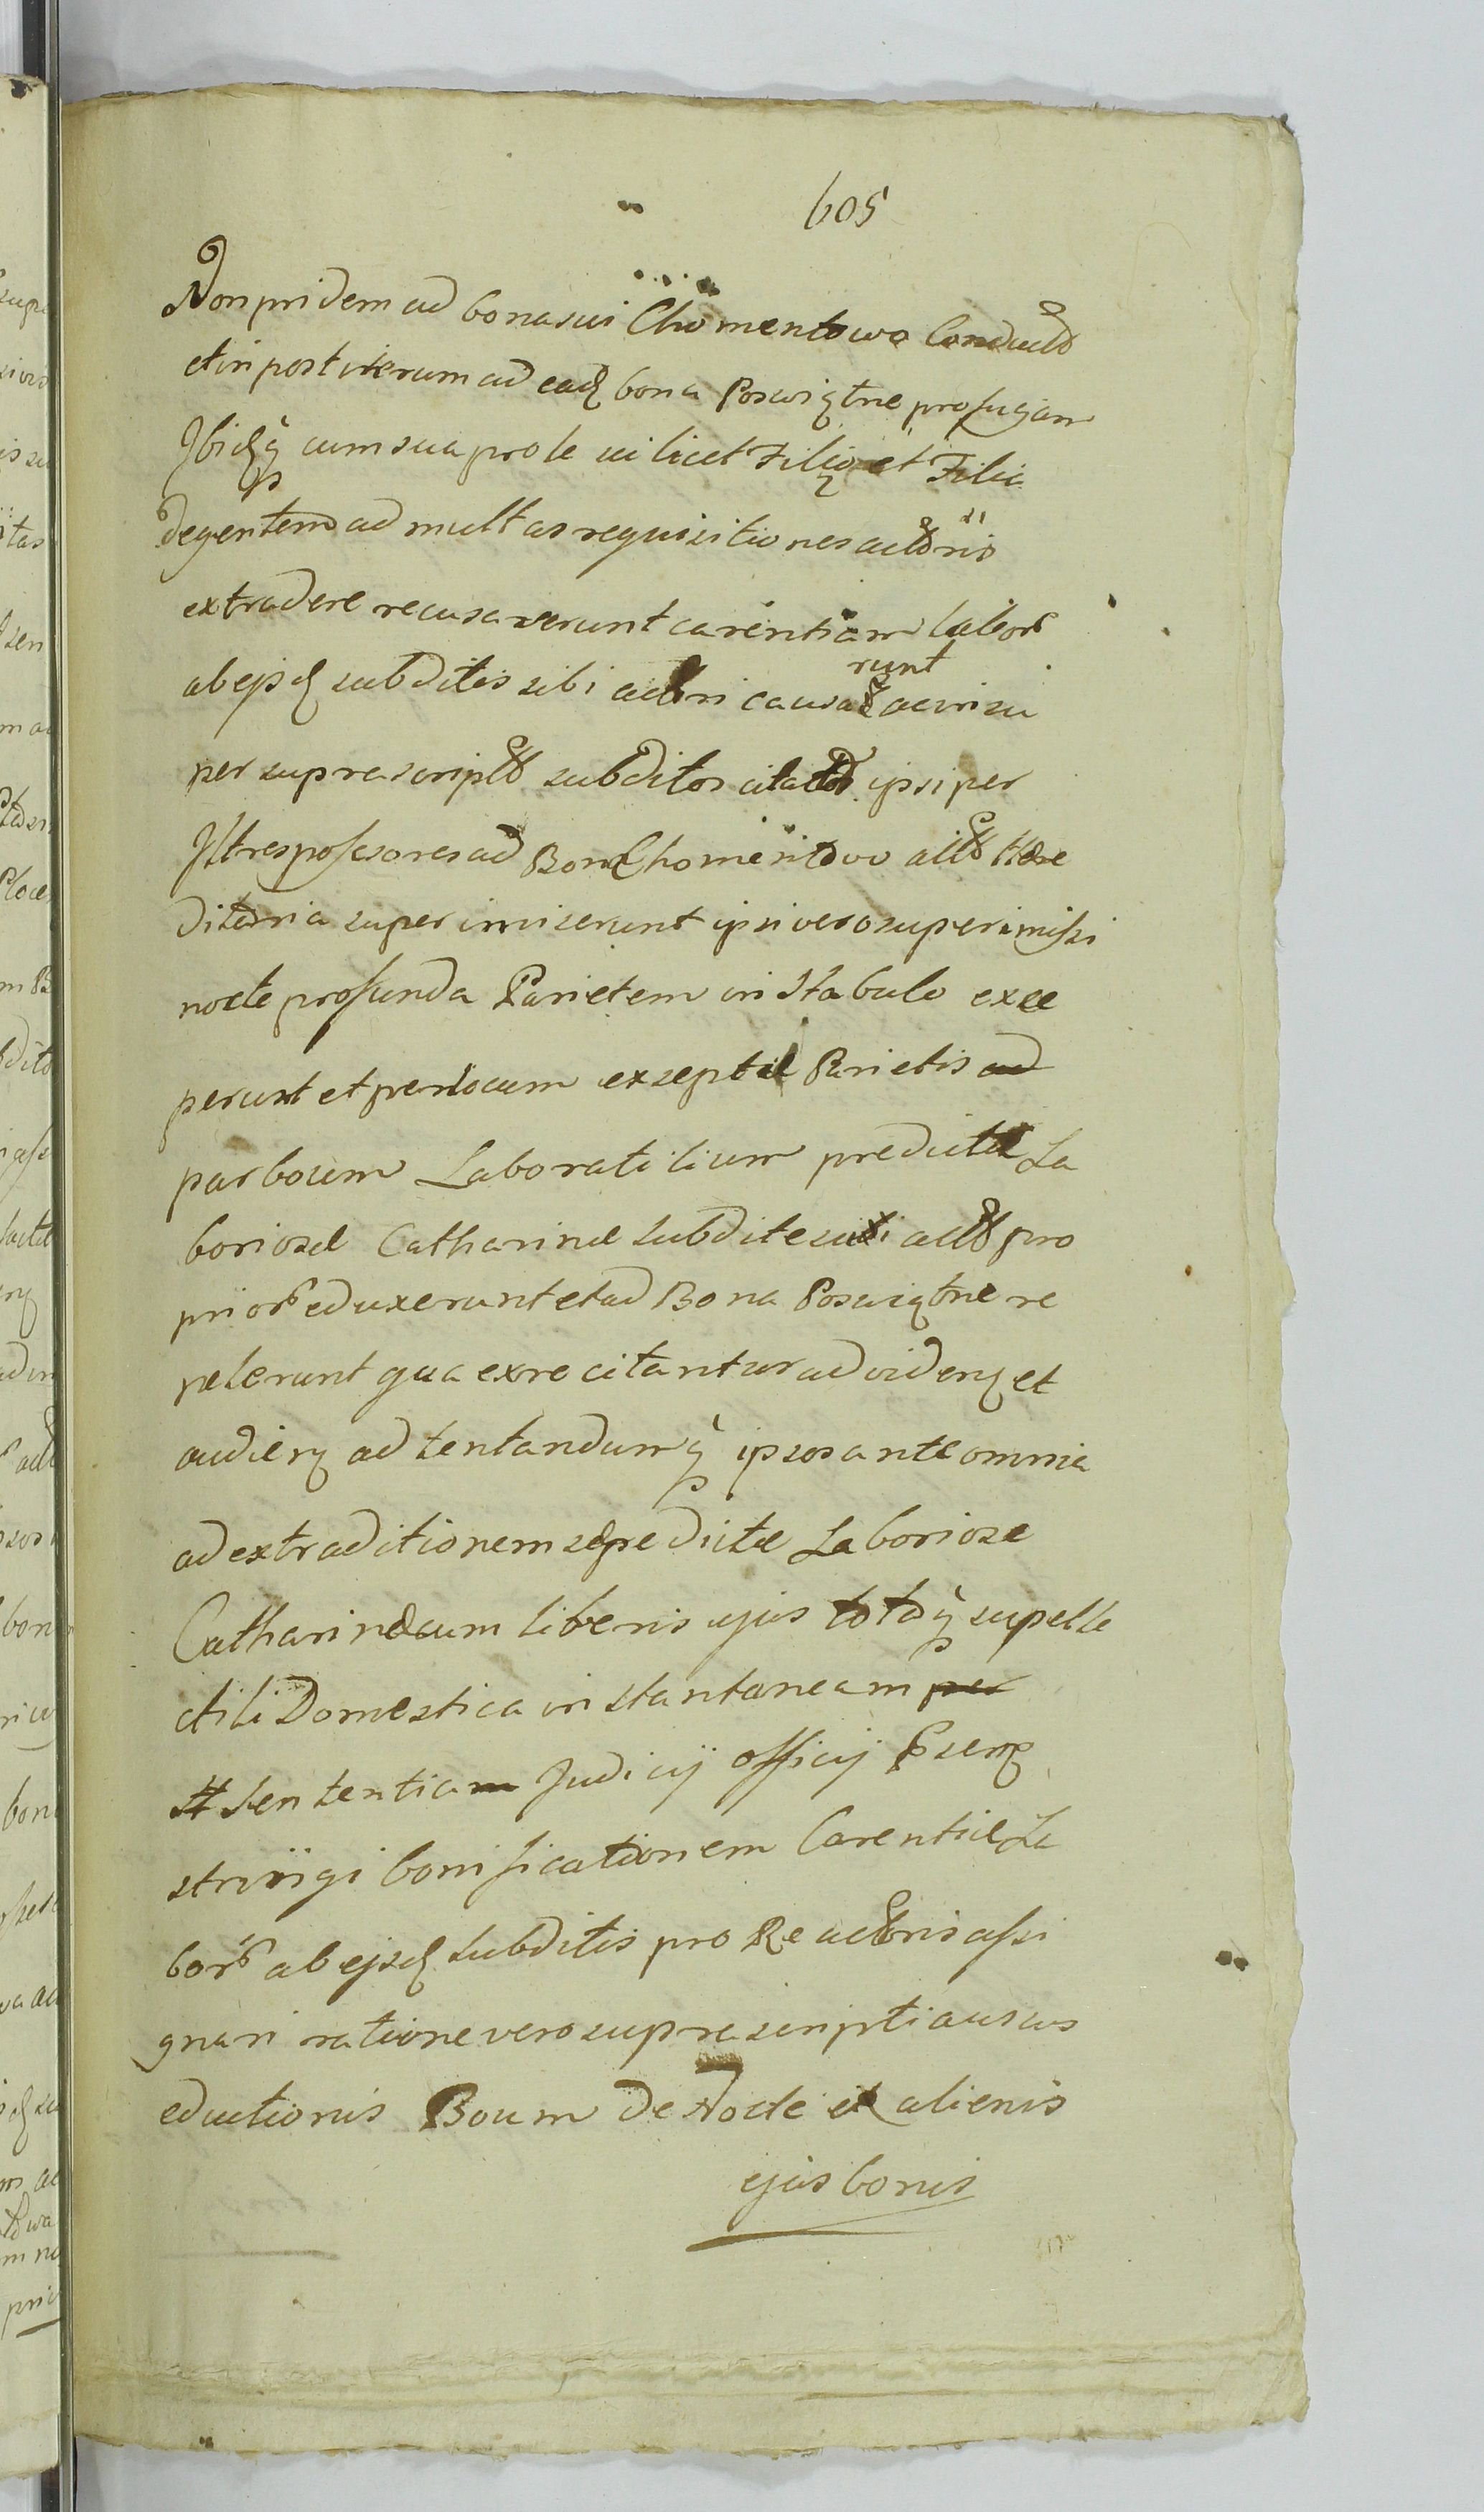 605
Non pridem ad bona sui Chomentowo Conduct
et in post iterum ad ead bona Poswiętne profugam
Ibidq cum sua prole videlicet Filio et Filia
degentem ad multas requisitiones actoris
extradere recusaverunt carentiam labor
ab ejsd subditis sibi actori causarunt ac in su
per suprascript subditos citatos ipsi per
Iltres possesores ad Bona Chomentowo act Hære
ditaria superimiserunt ipsi vero superimissi
nocte profunda Parietem in Stabulo exce
perunt et per locum exseptæ Parietis
par boum Laboratilium predictæ La
boriosæ Catharinæ subdite sui act pro
prior eduxerunt et ad Bona Poswiętne re
pelerunt qua ex re citantur ad videnq et
audienq ad tentandumq ipsos ante omnia
ad extraditionem sepredictæ Laboriosæ
Catharinæ cum liberis ejus totaq supelle
ctili Domestica instantaneam
Sententiam Judicij officij Psenq
stringi bonificationem Carentiæ La
bor ab ejsd subditis pro Re actoris assi
gnari ratione vero suprascripti ausus
eductionis Boum de Nocte ex alienis
ejus bonis